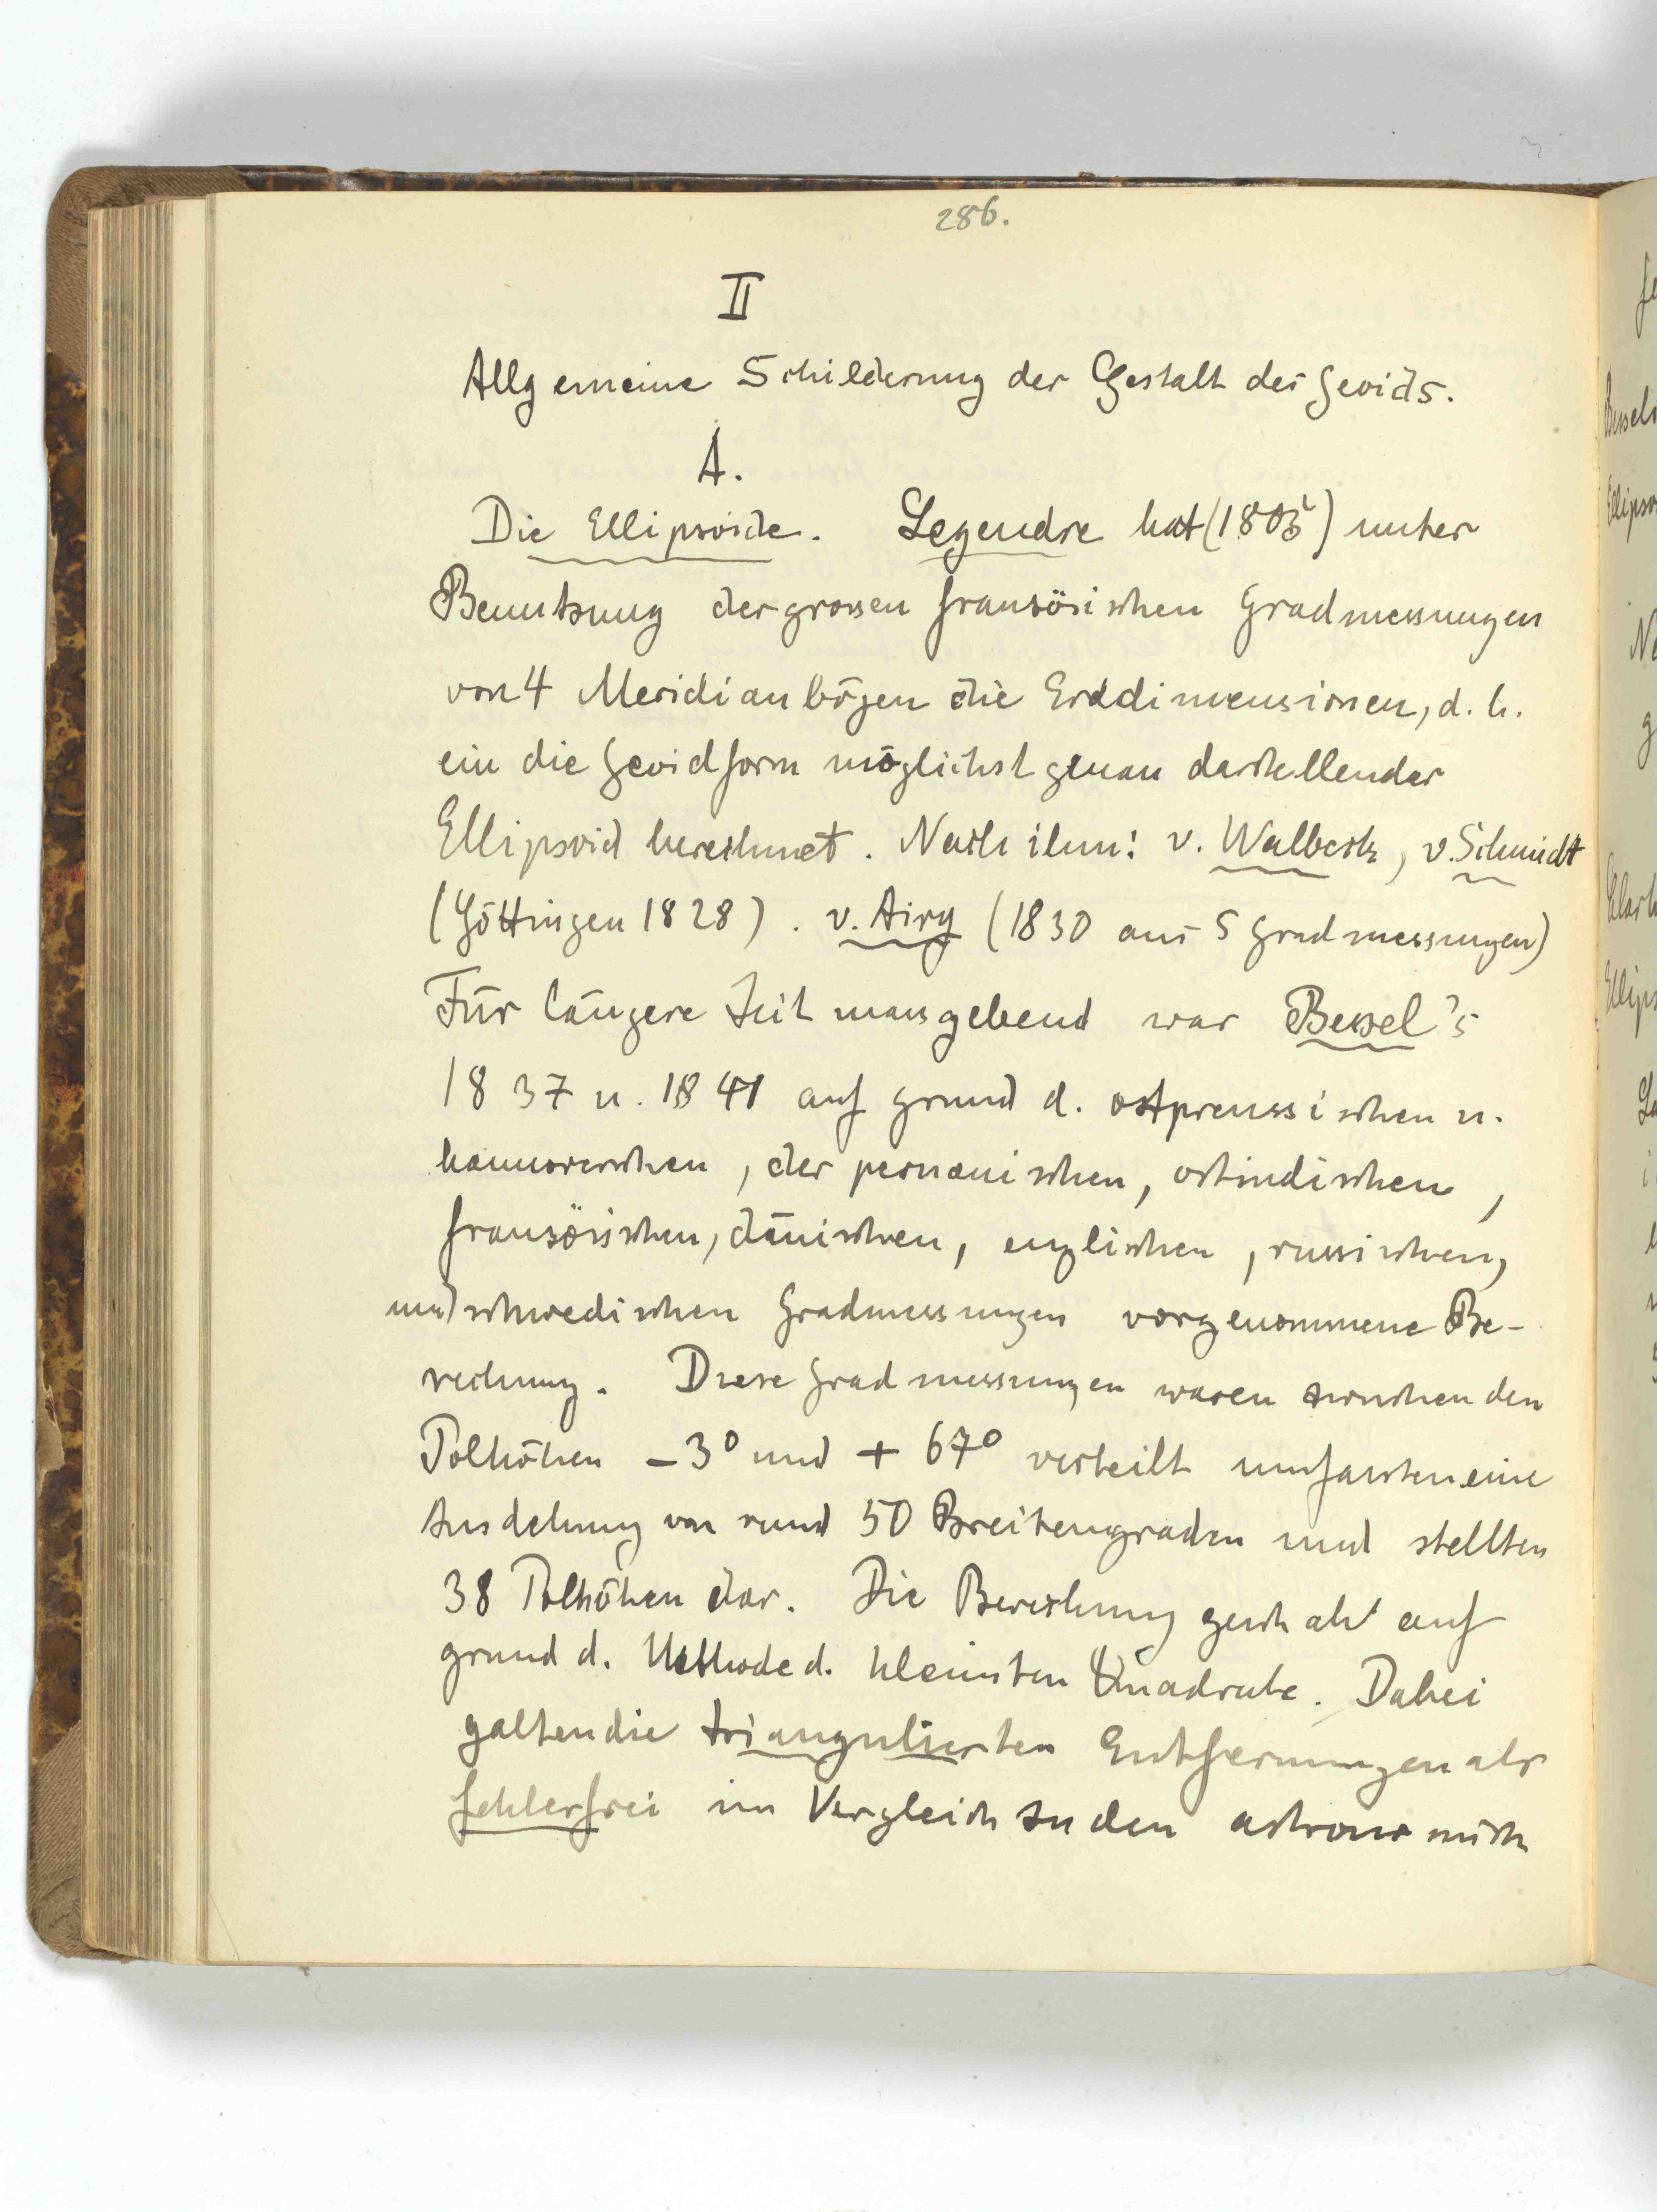 286.
II
Allgemeine Schilderung der Gestalt des Geoids.
A.
Die Ellipsoide. Legendre hat (1805) unter
Benutzung der grossen französischen Gradmessungen
von 4 Meridianbögen die Erddimensionen, d. h.
ein die Geoidform möglichst genau darstellender
Ellipsoid berechnet. Nach ihm: v. Walbeck, v. Schmidt
(Göttingen 1828). v. Airy (1830 aus 5 Gradmessungen)
Für längere Zeit massgebend war Bessel's
1837 u. 1841 auf grund d. ostpreussischen u.
hannoverschen, der peruanischen, ostindischen,
französischen, dänischen, englischen, russischen,
und schwedischen Gradmessungen vorgenommene Be-
rechnung. Diese Gradmessungen waren zwischen den
Polhöhen -3° und + 67° verteilt umfassten eine
Ausdehnung von rund 50 Breitengraden und stellten
38 Polhöhen dar. Die Berechnung geschah auf
grund d. Methode d. kleinsten Quadrate. Dabei
galten die triangulierten Entfernungen als
fehlerfrei im Vergleich zu den astronomisch